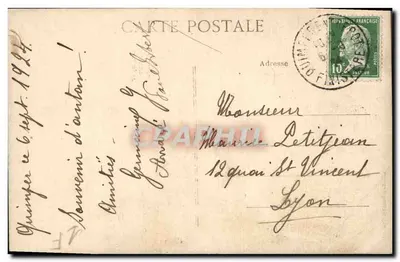 CARTE POSTALE
Adresse
Quimper ce 6 sept. 1924
Souvenir d'antan !
Amitiés
Germaine
Monsieur
Maurice Petitjean
12 quai St Vincent
Lyon
QUIMPER
FINISTERE
10
1F